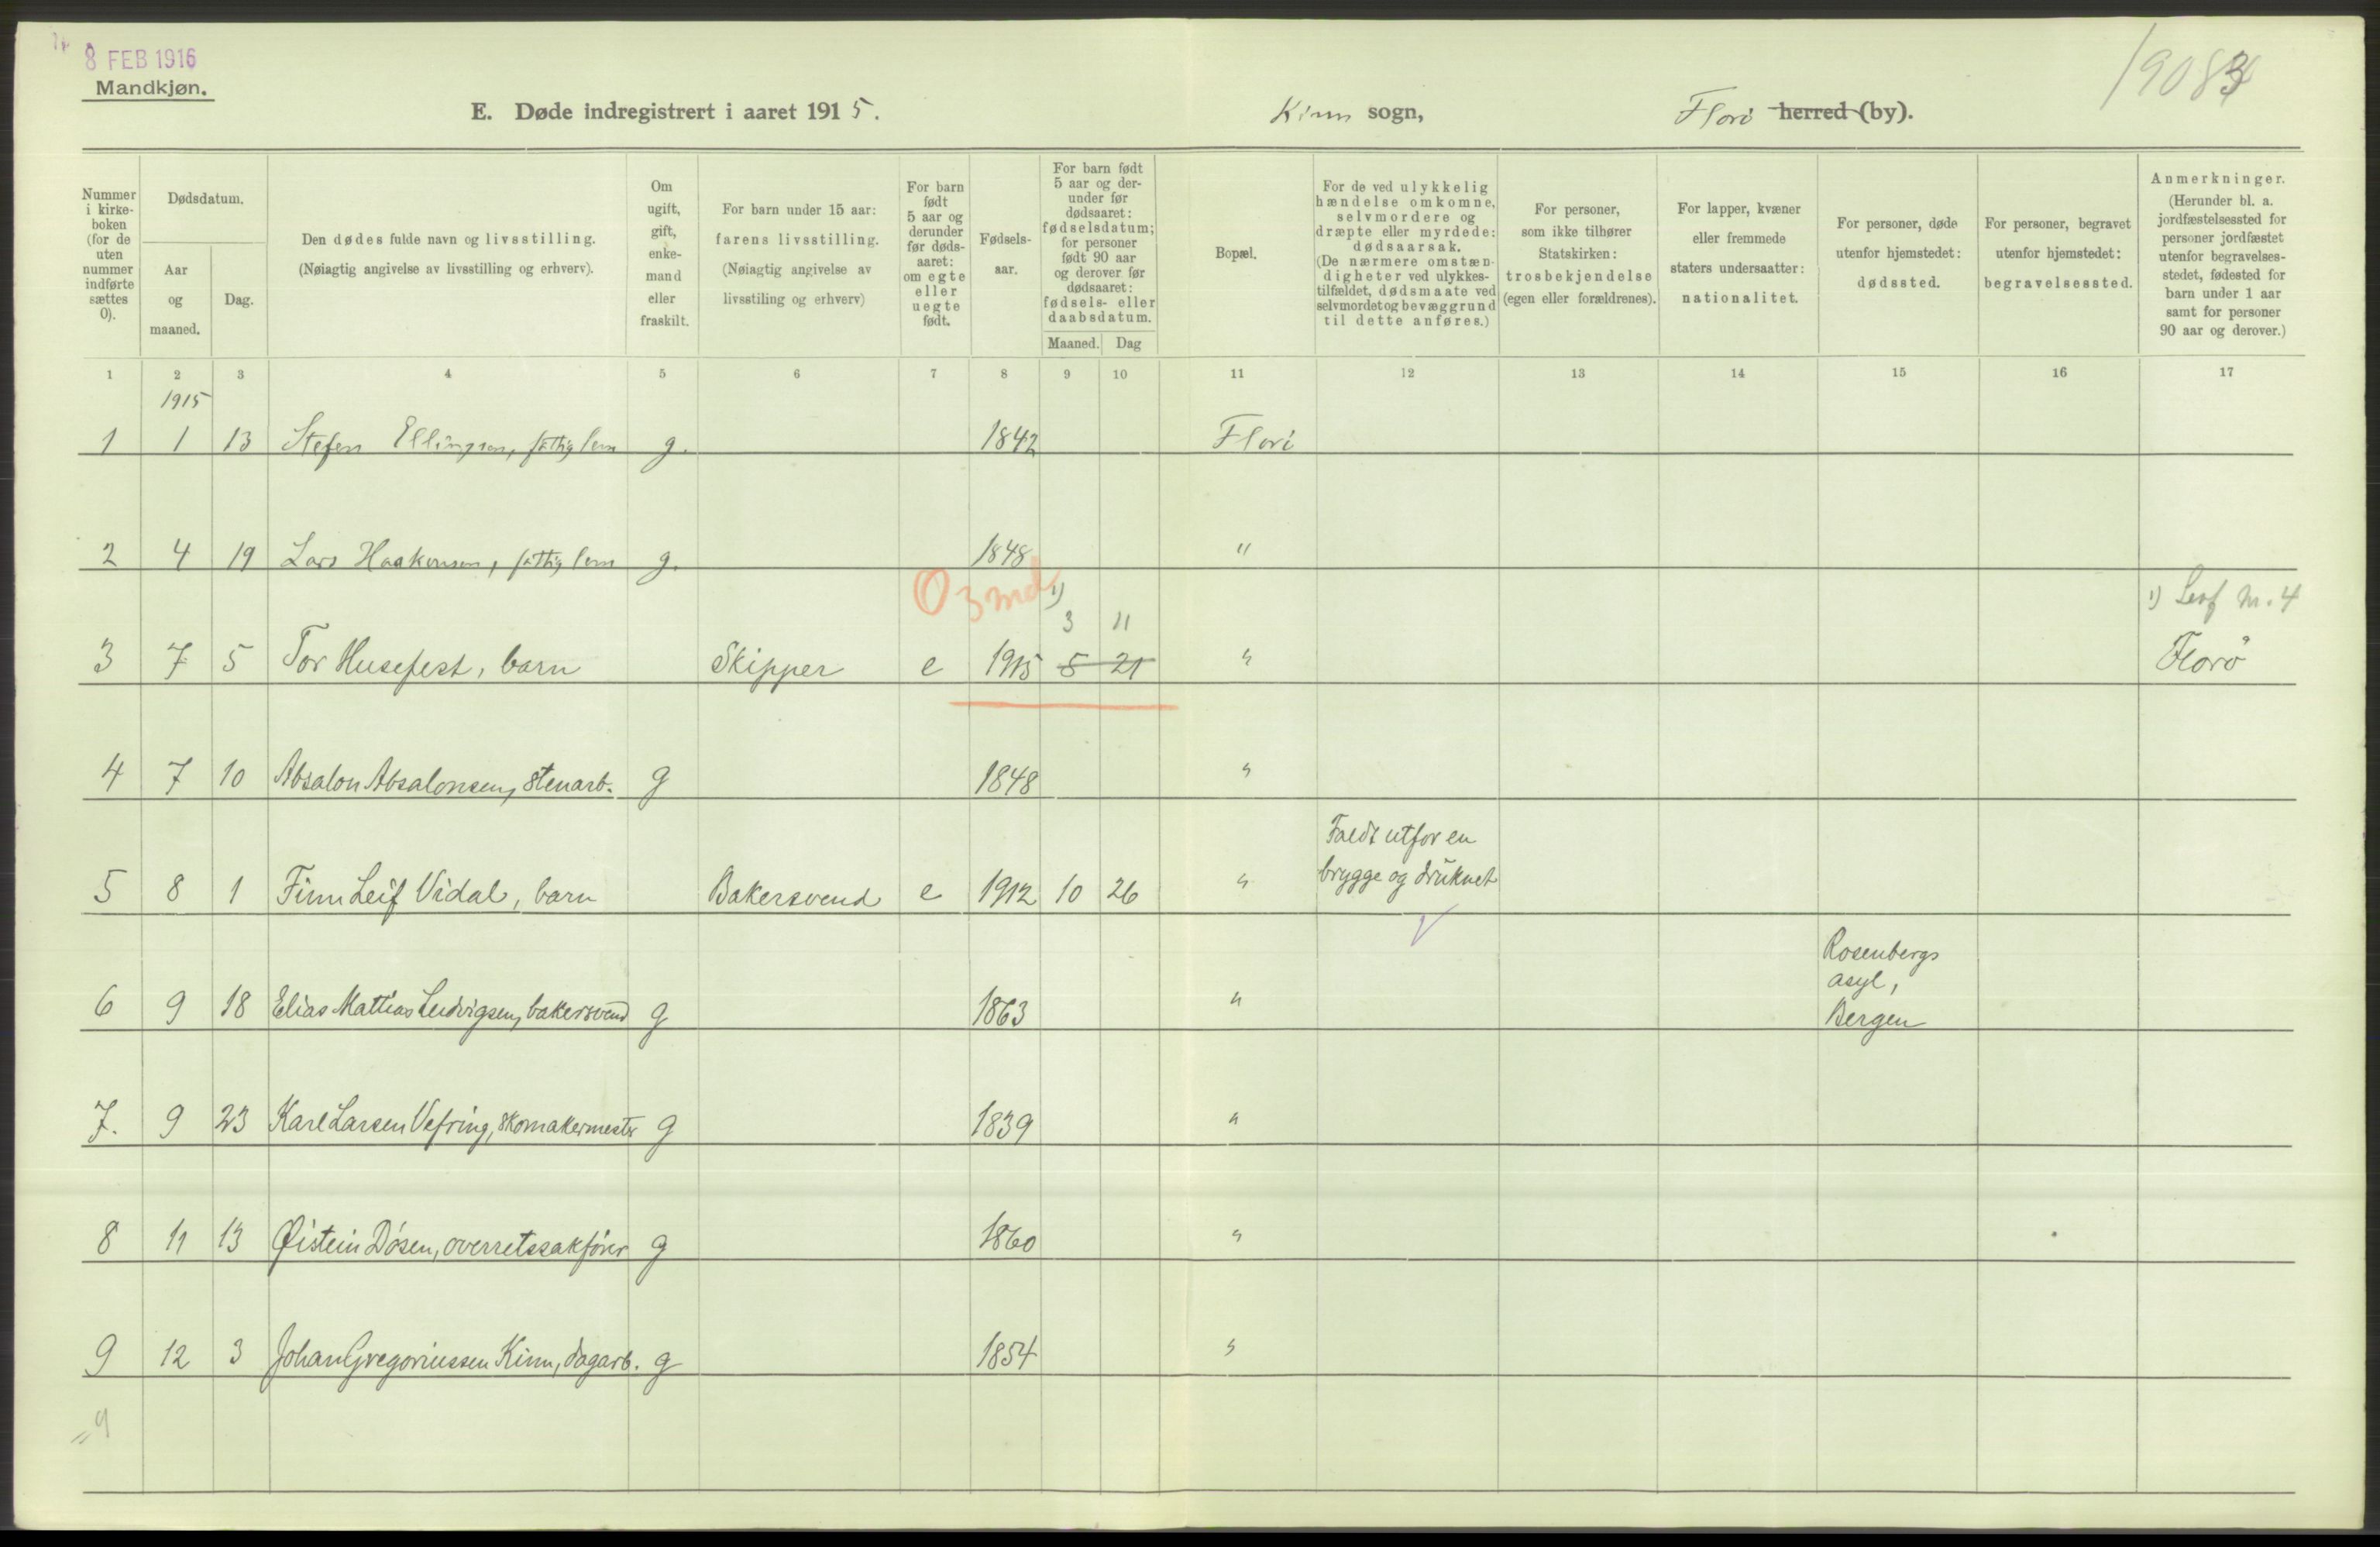 8 FEB 1916
Mandkjøn.
19083
E. Døde indregistrert i aaret 1915.
Kinn sogn,
Florø herred (by).
Nummer i kirke-boken (for de uten nummer indførte sættes 0).
Dødsdatum.
Aar og maaned.
Dag.
Den dødes fulde navn og livsstilling.
(Nøiagtig angivelse av livsstilling og erhverv).
Om ugift, gift, enke-mand eller fraskilt.
For barn under 15 aar:
farens livsstilling.
(Nøiagtig angivelse av
livsstiling og erhverv)
For barn født 5 aar og derunder før døds-aaret: om egte eller uegte født.
Fødsels-aar.
For barn født 5 aar og der-under før dødsaaret: fødselsdatum; for personer født 90 aar og derover før dødsaaret: fødsels- eller daabsdatum.
Maaned. Dag
Bopæl.
For de ved ulykkelig hændelse omkomne, selvmordere og dræpte eller myrdede: dødsaarsak.
(De nærmere omstæn-digheter ved ulykkes-tilfældet, dødsmaate ved selvmordet og bevæggrund til dette anføres.)
For personer, som ikke tilhører Statskirken: trosbekjendelse (egen eller forældrenes).
For lapper, kvæner eller fremmede staters undersaatter: nationalitet.
For personer, døde utenfor hjemstedet: dødssted.
For personer, begravet utenfor hjemstedet: begravelsessted.
Anmerkninger.
(Herunder bl. a. jordfæstelsessted for personer jordfæstet utenfor begravelses-stedet, fødested for barn under 1 aar samt for personer 90 aar og derover.)
1 2 3 4 5 6 7 8 9 10 11 12 13 14 15 16 17
1915
1 1 13 Stefen Ellingsen, fattiglem g. 1842 Florø
2 4 19 Lars Haakonsen, fattiglem g. 1848 "
0 3 md 1)
3 11
1) Leaf nr. 4
3 7 5 Tor Husefest, barn Skipper e 1915 5 21 " Florø
4 7 10 Absalon Absalonsen, stenarb. g 1848 "
Faldt utfor en
brygge og druknet
5 8 1 Finn Leif Vidal, barn Bakersvend e 1912 10 26 "
Rosenbergs
asyl,
Bergen
6 9 18 Elias Mattias Ludvigsen, bakersvend g 1863 "
7. 9 23 Karl Larsen Vefring, skomakermester g 1839 "
8 11 13 Øistein Døsen, overretssakfører g 1860 "
9 12 3 Johan Gregoriussen Kinn, dagarb. g 1854 "
9